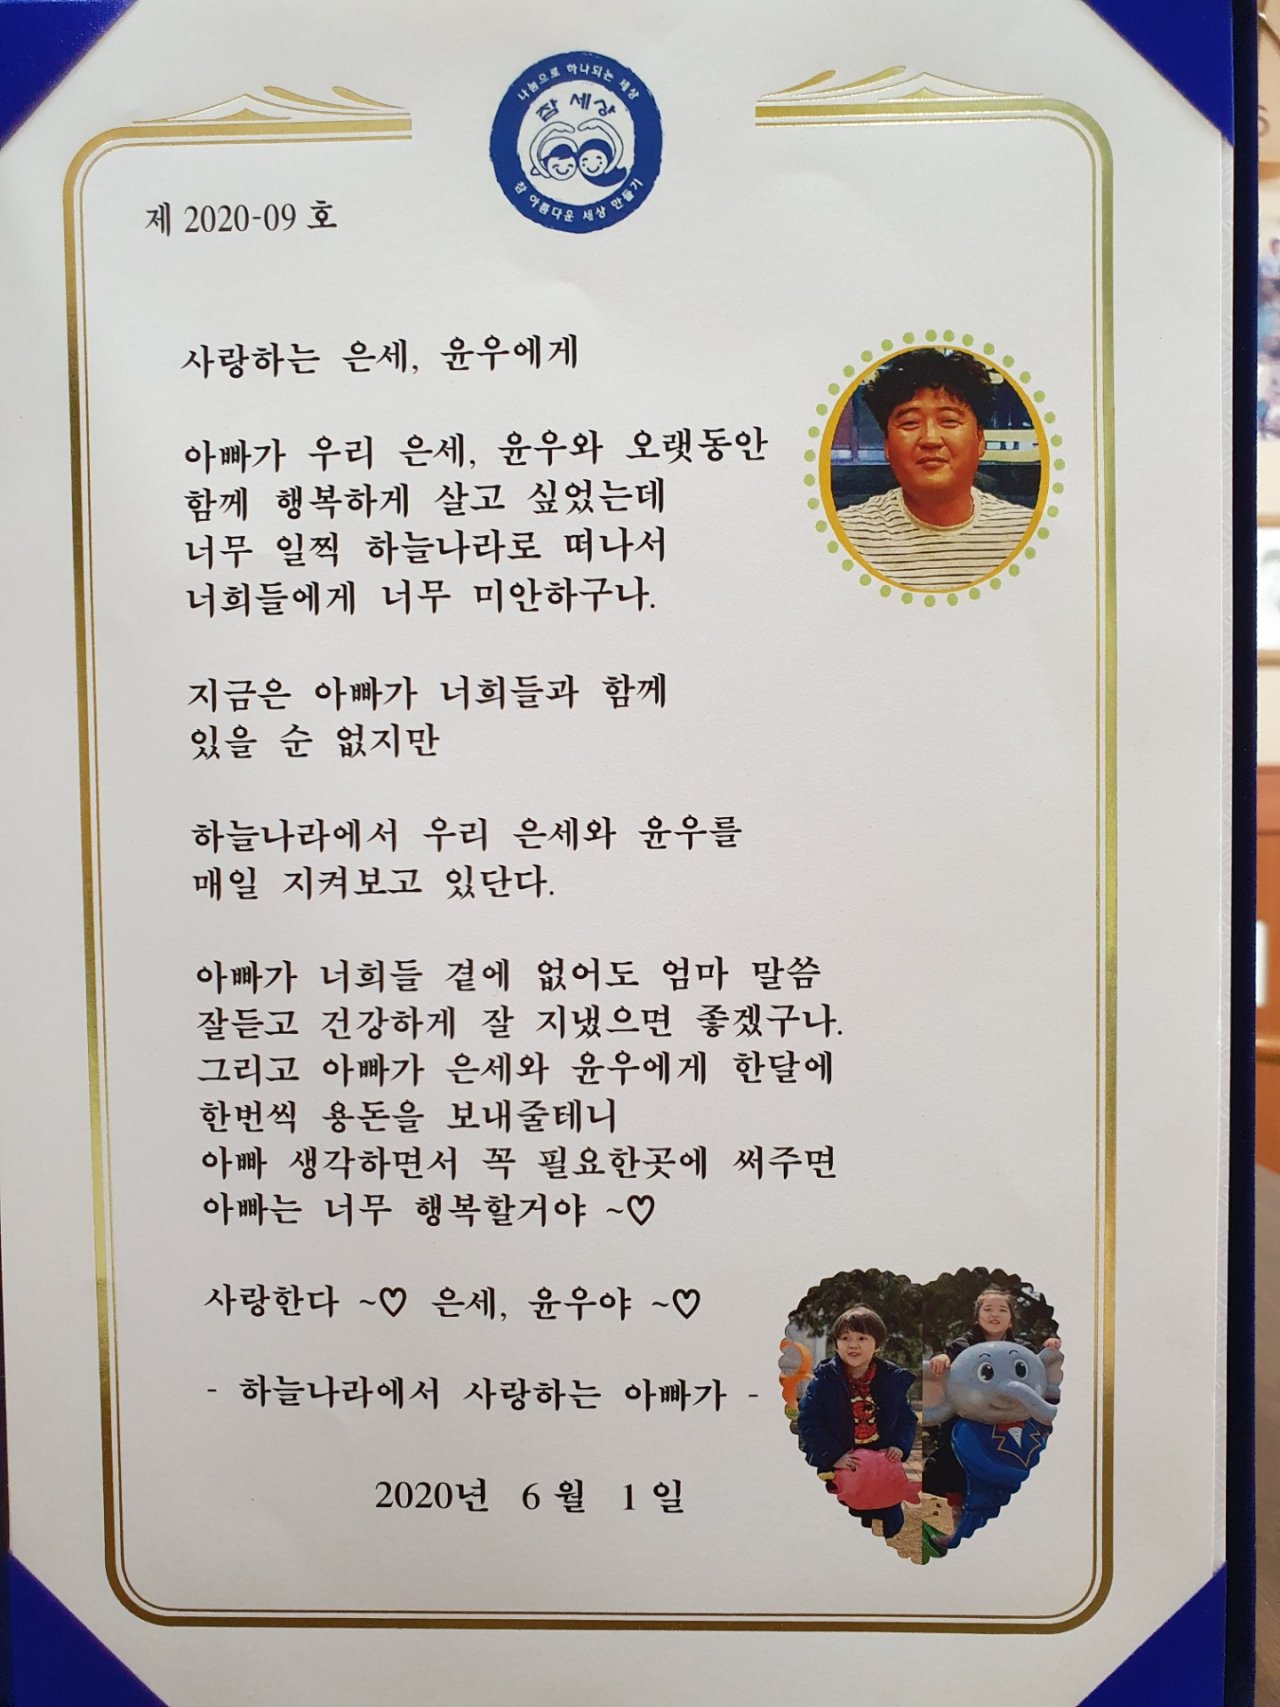 나눔으로 하나되는 세상
참 세상
참 아름다운 세상 만들기
제 2020-09 호
사랑하는 은세, 윤우에게
아빠가 우리 은세, 윤우와 오랫동안
함께 행복하게 살고 싶었는데
너무 일찍 하늘나라로 떠나서
너희들에게 너무 미안하구나.
지금은 아빠가 너희들과 함께
있을 순 없지만
하늘나라에서 우리 은세와 윤우를
매일 지켜보고 있단다.
아빠가 너희들 곁에 없어도 엄마 말씀
잘듣고 건강하게 잘 지냈으면 좋겠구나.
그리고 아빠가 은세와 윤우에게 한달에
한번씩 용돈을 보내줄테니
아빠 생각하면서 꼭 필요한곳에 써주면
아빠는 너무 행복할거야 ~♡
사랑한다 ~♡ 은세, 윤우야 ~♡
- 하늘나라에서 사랑하는 아빠가 -
2020년 6 월 1 일